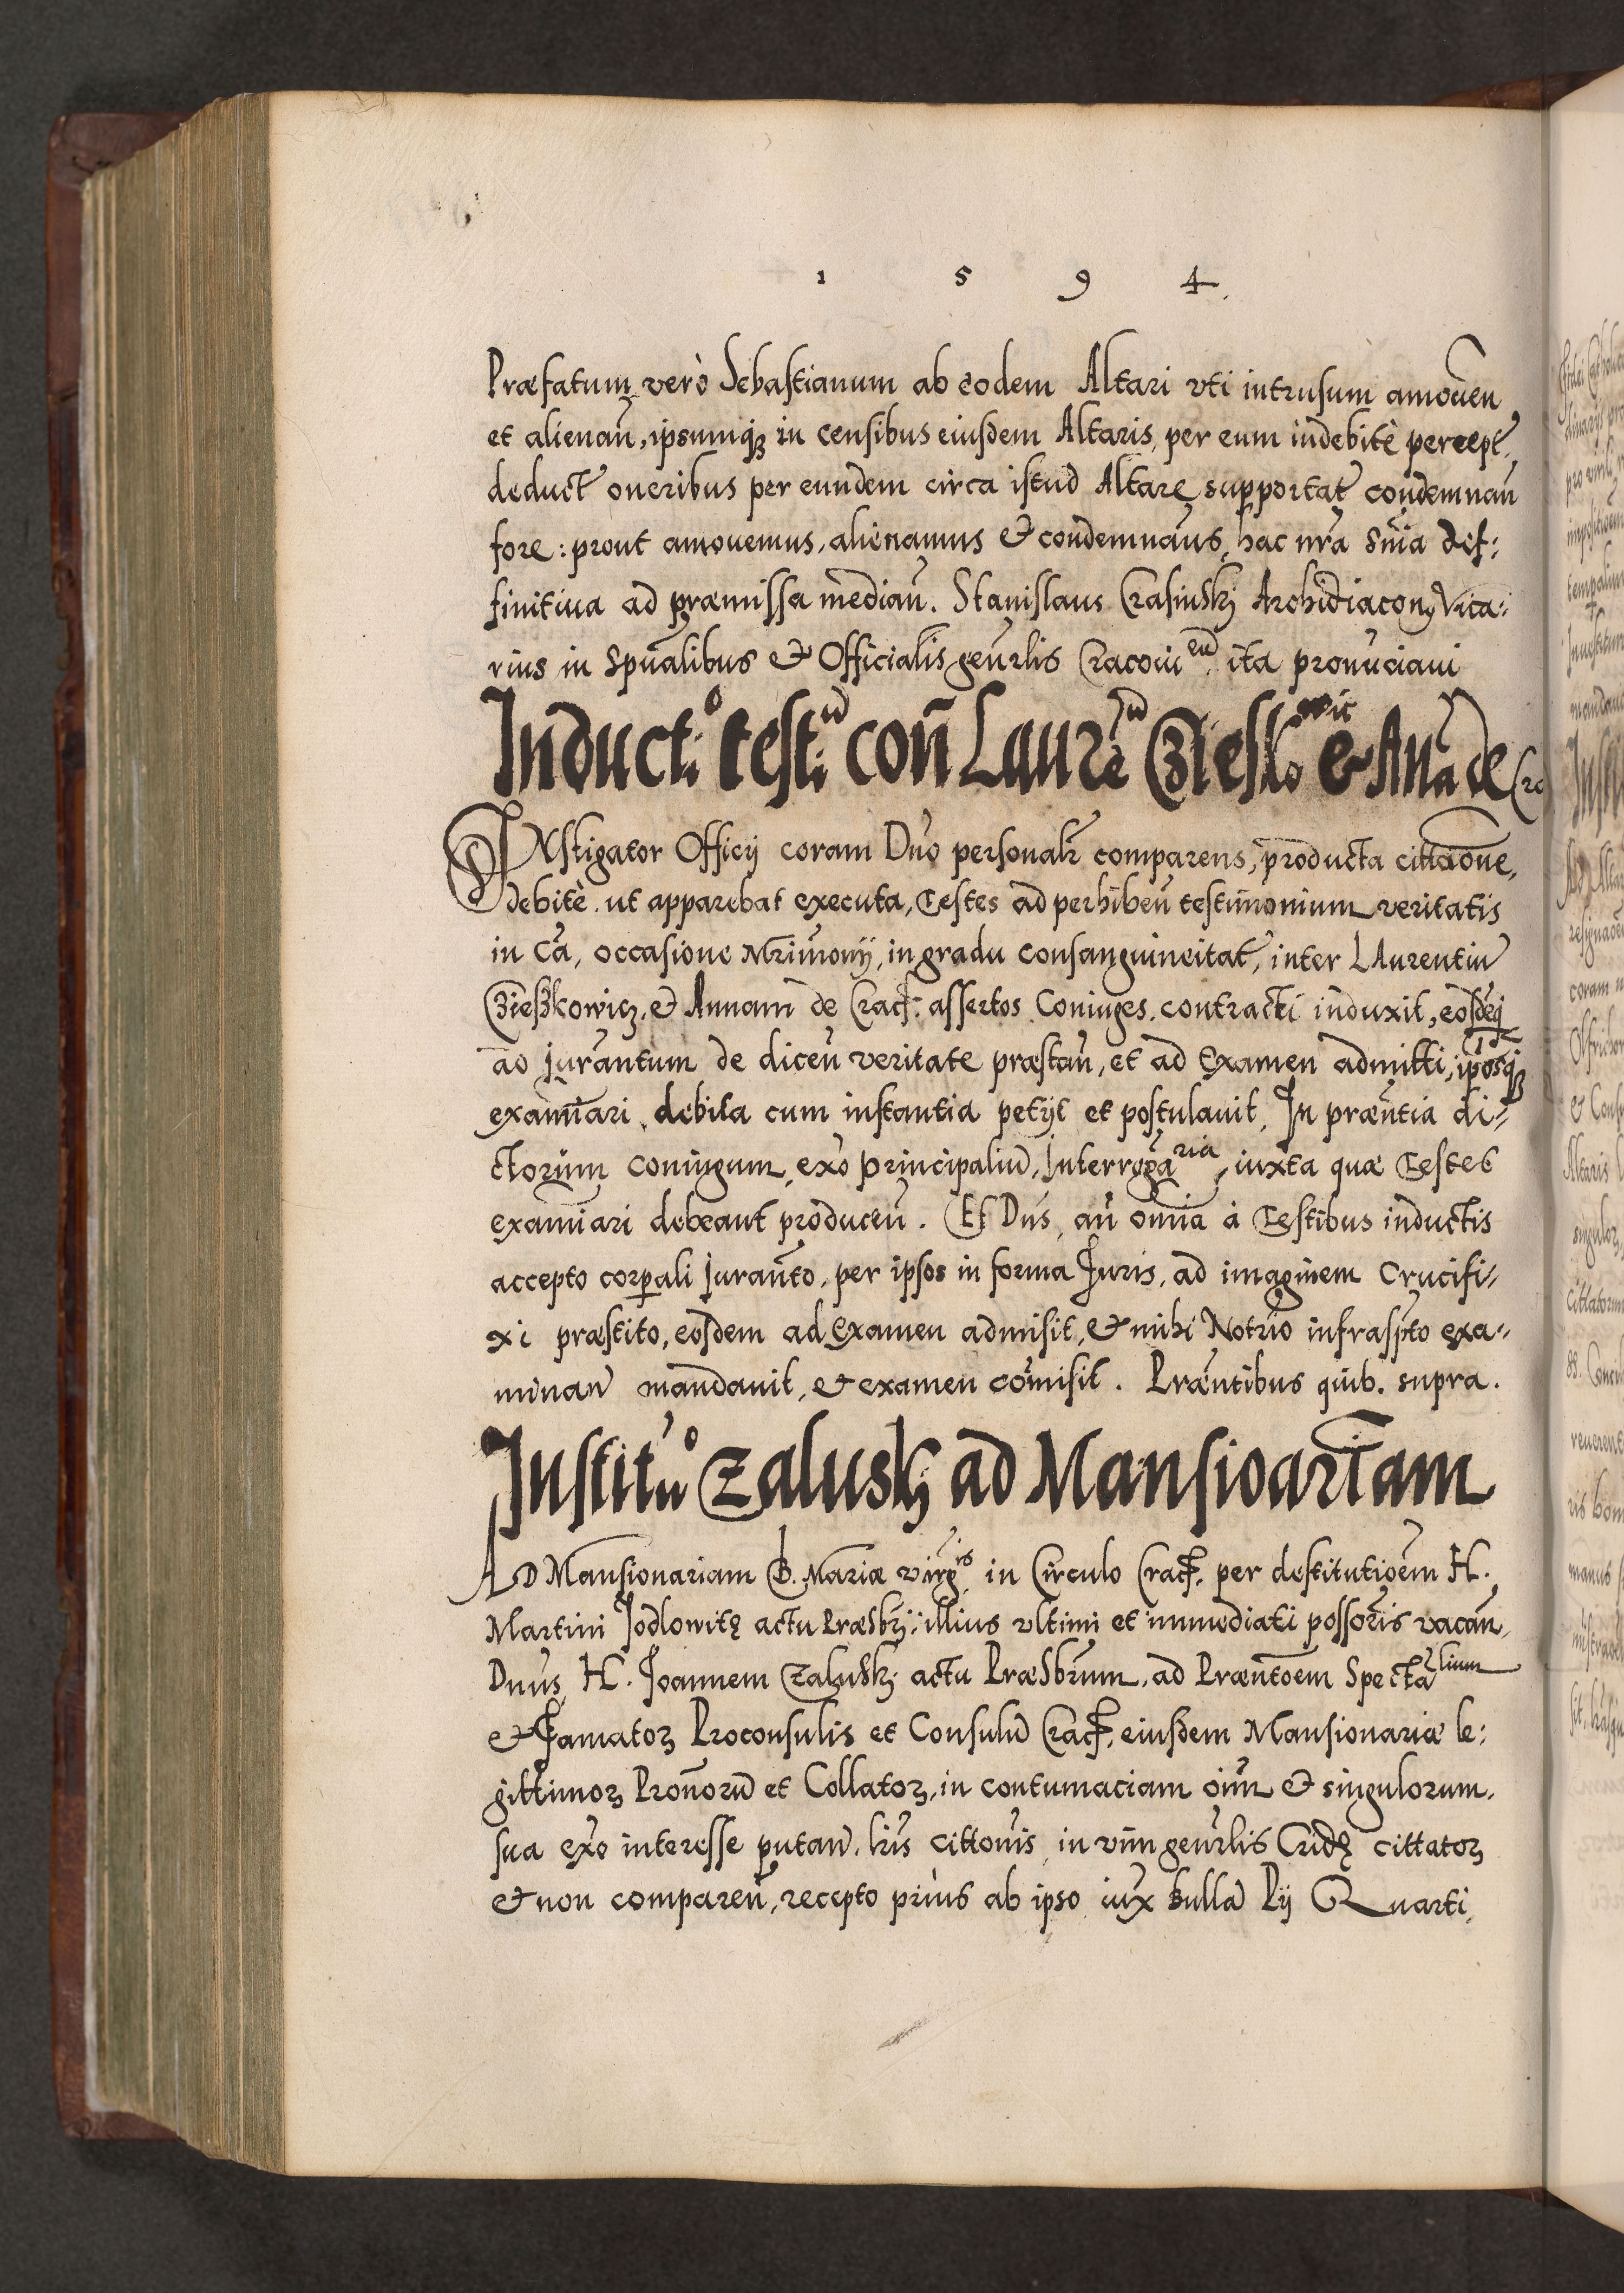 1 5 9 4
Præfatum verò Sebastianum ab eodem Altari vti intrusum amoueñ
et alienañ, ipsumq̃ in censibus eiusdem Altaris, per eum indebitè percept̃,
deduct̃ oneribus per eundem circa istud Altare supportat̃ condemnañ
fore: prout amouemus, alienamus & condemnãus, hac nr̃a sñia def:
finitiua ad præmissa mediañ. Stanislaus Crasinskj Archidiaconꝰ Vica:
rius in Spũalibus & Officialis geñrlis Cracouieñ ita pronũciaui
Induct: testiũ con̄ Laurẽ Zieskowic & Añã de Cra
INstigator Officij coram Dñõ personalr̃ comparens, producta cittãone,
debitè ut apparebat executa, testes ad perhibeñ testimonium veritatis
in Cã, occasione Mr̃imonij, in gradu consanguineitat̃, inter LAurentiũ
Zieszkowicz, & Annam de Cracẽ assertos Coniuges contracti induxit, eosdeq̃
ad Jurãntum de diceñ veritate præstañ, et ad Examen admitti, ip̃osq̃
examĩari debita cum instantia petijt et postulauit, In præñtia di-
ctorum coniugum, ex̃o principaliũ, Interrogãria, iuxta quæ testes
examĩari debeant produceñ. Et Dñs, añ omĩa à testibus inductis
accepto corp̃ali Jurañto, per ipsos in forma Juris, ad imaginem Crucifi-
xi præstito, eosdem ad Examen admisit, & mihi Notr̃io infrasp̃to exa-
minañ mandauit, & examen com̃isit. Præñtibus quib. supra.
Institũo Zaluskj ad Mansioar̃iam
AD Mansionariam B. Mariæ virg̃is in Circulo Cracẽ. per destitutiõem H.
Martini Jodlowitę actu Præsbr̃i: illius vltimi et immediati possor̃is vacañ,
Dñus H. Joannem Zaluskj actu Præsbr̃um, ad Præñtõem Spectãlium
& Famatoꝝ Proconsulis et Consulũ Cracẽ, eiusdem Mansionariæ le:
gittimoꝝ Pronõrũ et Collatoꝝ, in contumaciam oĩm & singulorum,
sua ex̃o interesse putañ, lr̃is cittõnis, in vim geñrlis Cridę cittatoꝝ
& non compareñ, recepto priùs ab ipso iux̃ bullã Pij Quarti,